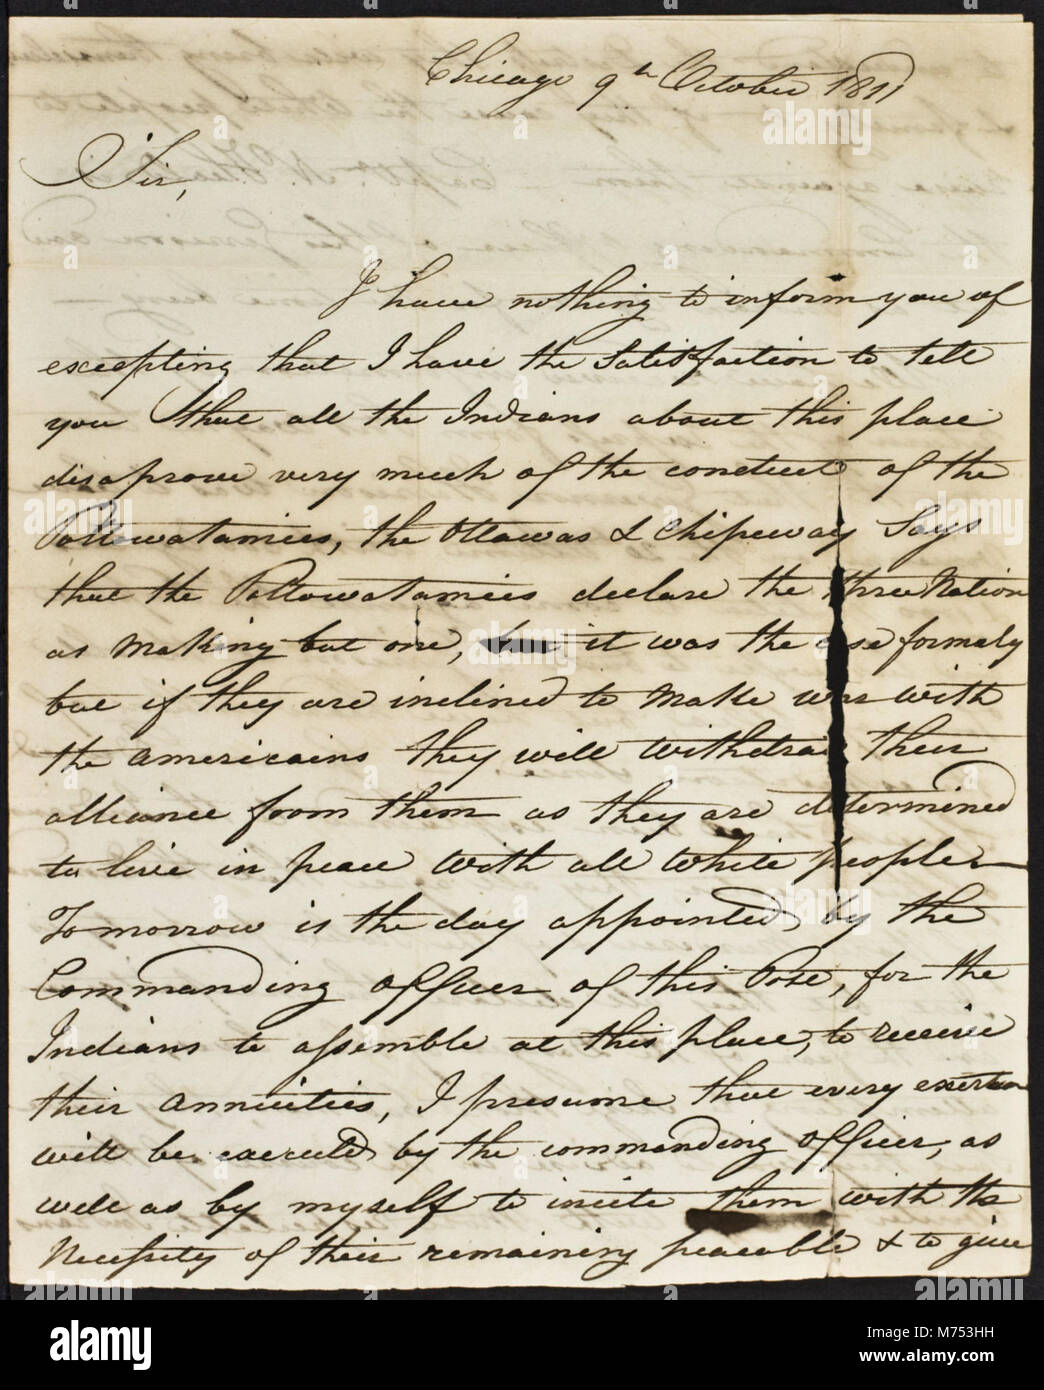 Chicago 9th October 1811
Sir,
I have nothing to inform you of
excepting that I have the Satisfaction to tell
you that all the Indians about this place
disaprove very much of the conduct of the
Pottowatamies, the Ottawas & Chipeway Says
that the Pottowatamies declare the three Nation
as making but one, it was the case formaly
but if they are inclined to make war with
the americains they will withdraw their
alliance from them as they are determined
to live in peace with all white people
Tomorrow is the day appointed, by the
Commanding officer of this Post, for the
Indians to assemble at this place, to receive
their annuities, I presume that every exertion
will be executed by the commanding officer, as
well as by myself to incite them with the
Necessity of their remaining peacable & to give
alamy
M753HH
www.alamy.com